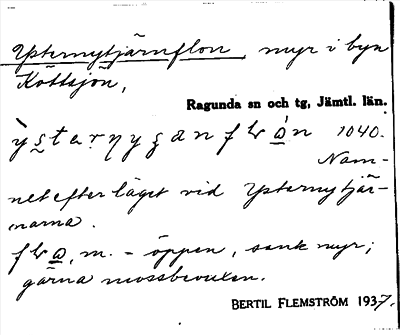 Ysternytjärnflon, myr i byn
Köttsjön,
Ragunda sn och tg, Jämtl. län.
1040.
Nam-
net efter läget vid Ysternytjär-
narna.
m. - öppen, sank myr;
gärna mossbevuxen.
BERTIL FLEMSTRÖM 1937.